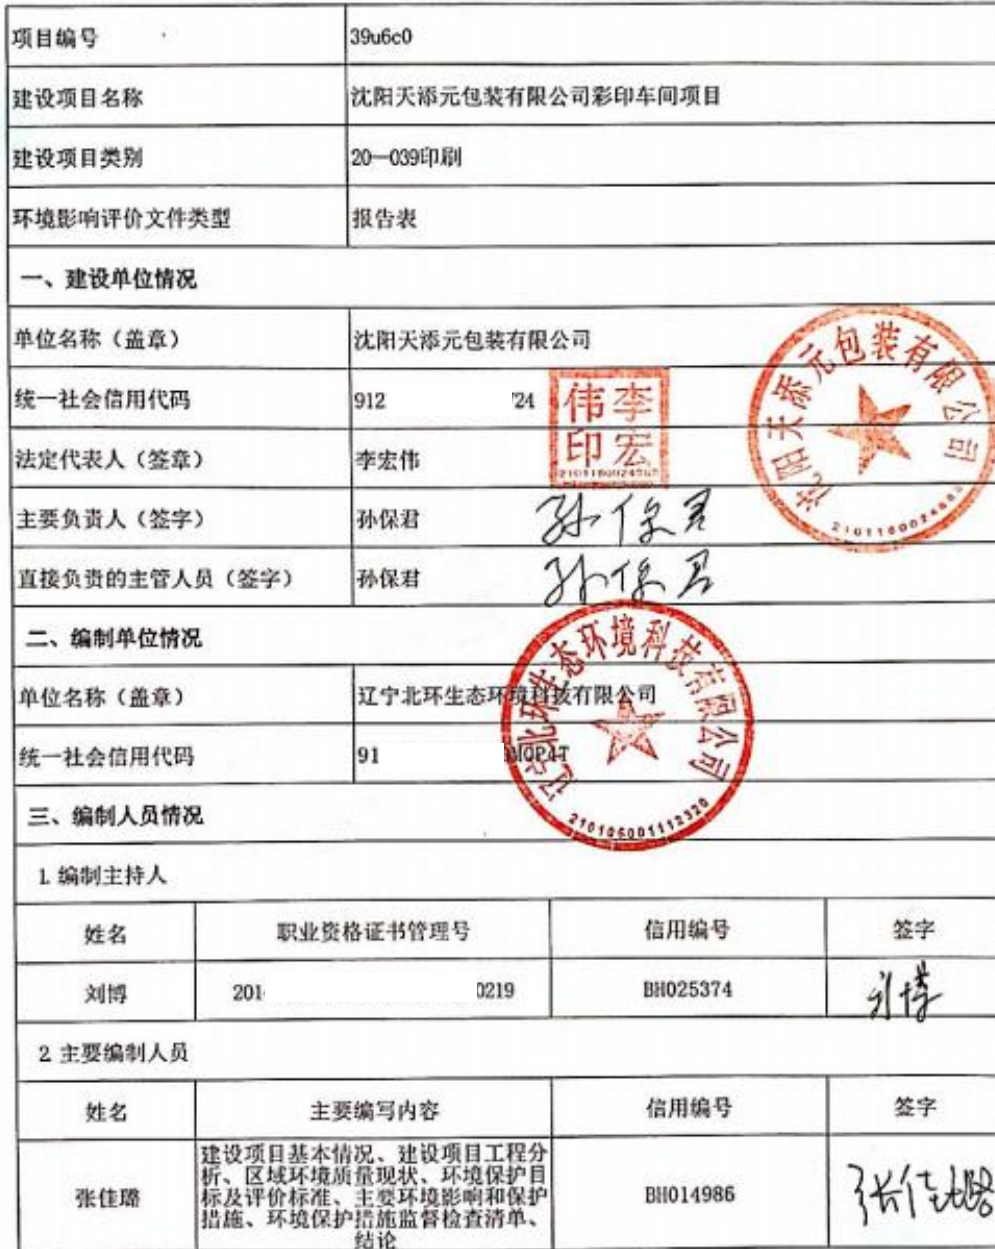 项目编号 39u6c0
建设项目名称 沈阳天添元包装有限公司彩印车间项目
建设项目类别 20—039印刷
环境影响评价文件类型 报告表
一、建设单位情况
单位名称（盖章） 沈阳天添元包装有限公司
统一社会信用代码 912 24
法定代表人（签章） 李宏伟
李宏伟印
沈阳天添元包装有限公司
主要负责人（签字） 孙保君 孙保君
直接负责的主管人员（签字） 孙保君 孙保君
二、编制单位情况
单位名称（盖章） 辽宁北环生态环境科技有限公司
统一社会信用代码 91 P4T
辽宁北环生态环境科技有限公司
210106001112320
三、编制人员情况
1.编制主持人
姓名 职业资格证书管理号 信用编号 签字
刘博 201 0219 BH025374 刘博
2.主要编制人员
姓名 主要编写内容 信用编号 签字
建设项目基本情况、建设项目工程分
析、区域环境质量现状、环境保护目
张佳璐 标及评价标准、主要环境影响和保护 BH014986 张佳璐
措施、环境保护措施监督检查清单、
结论